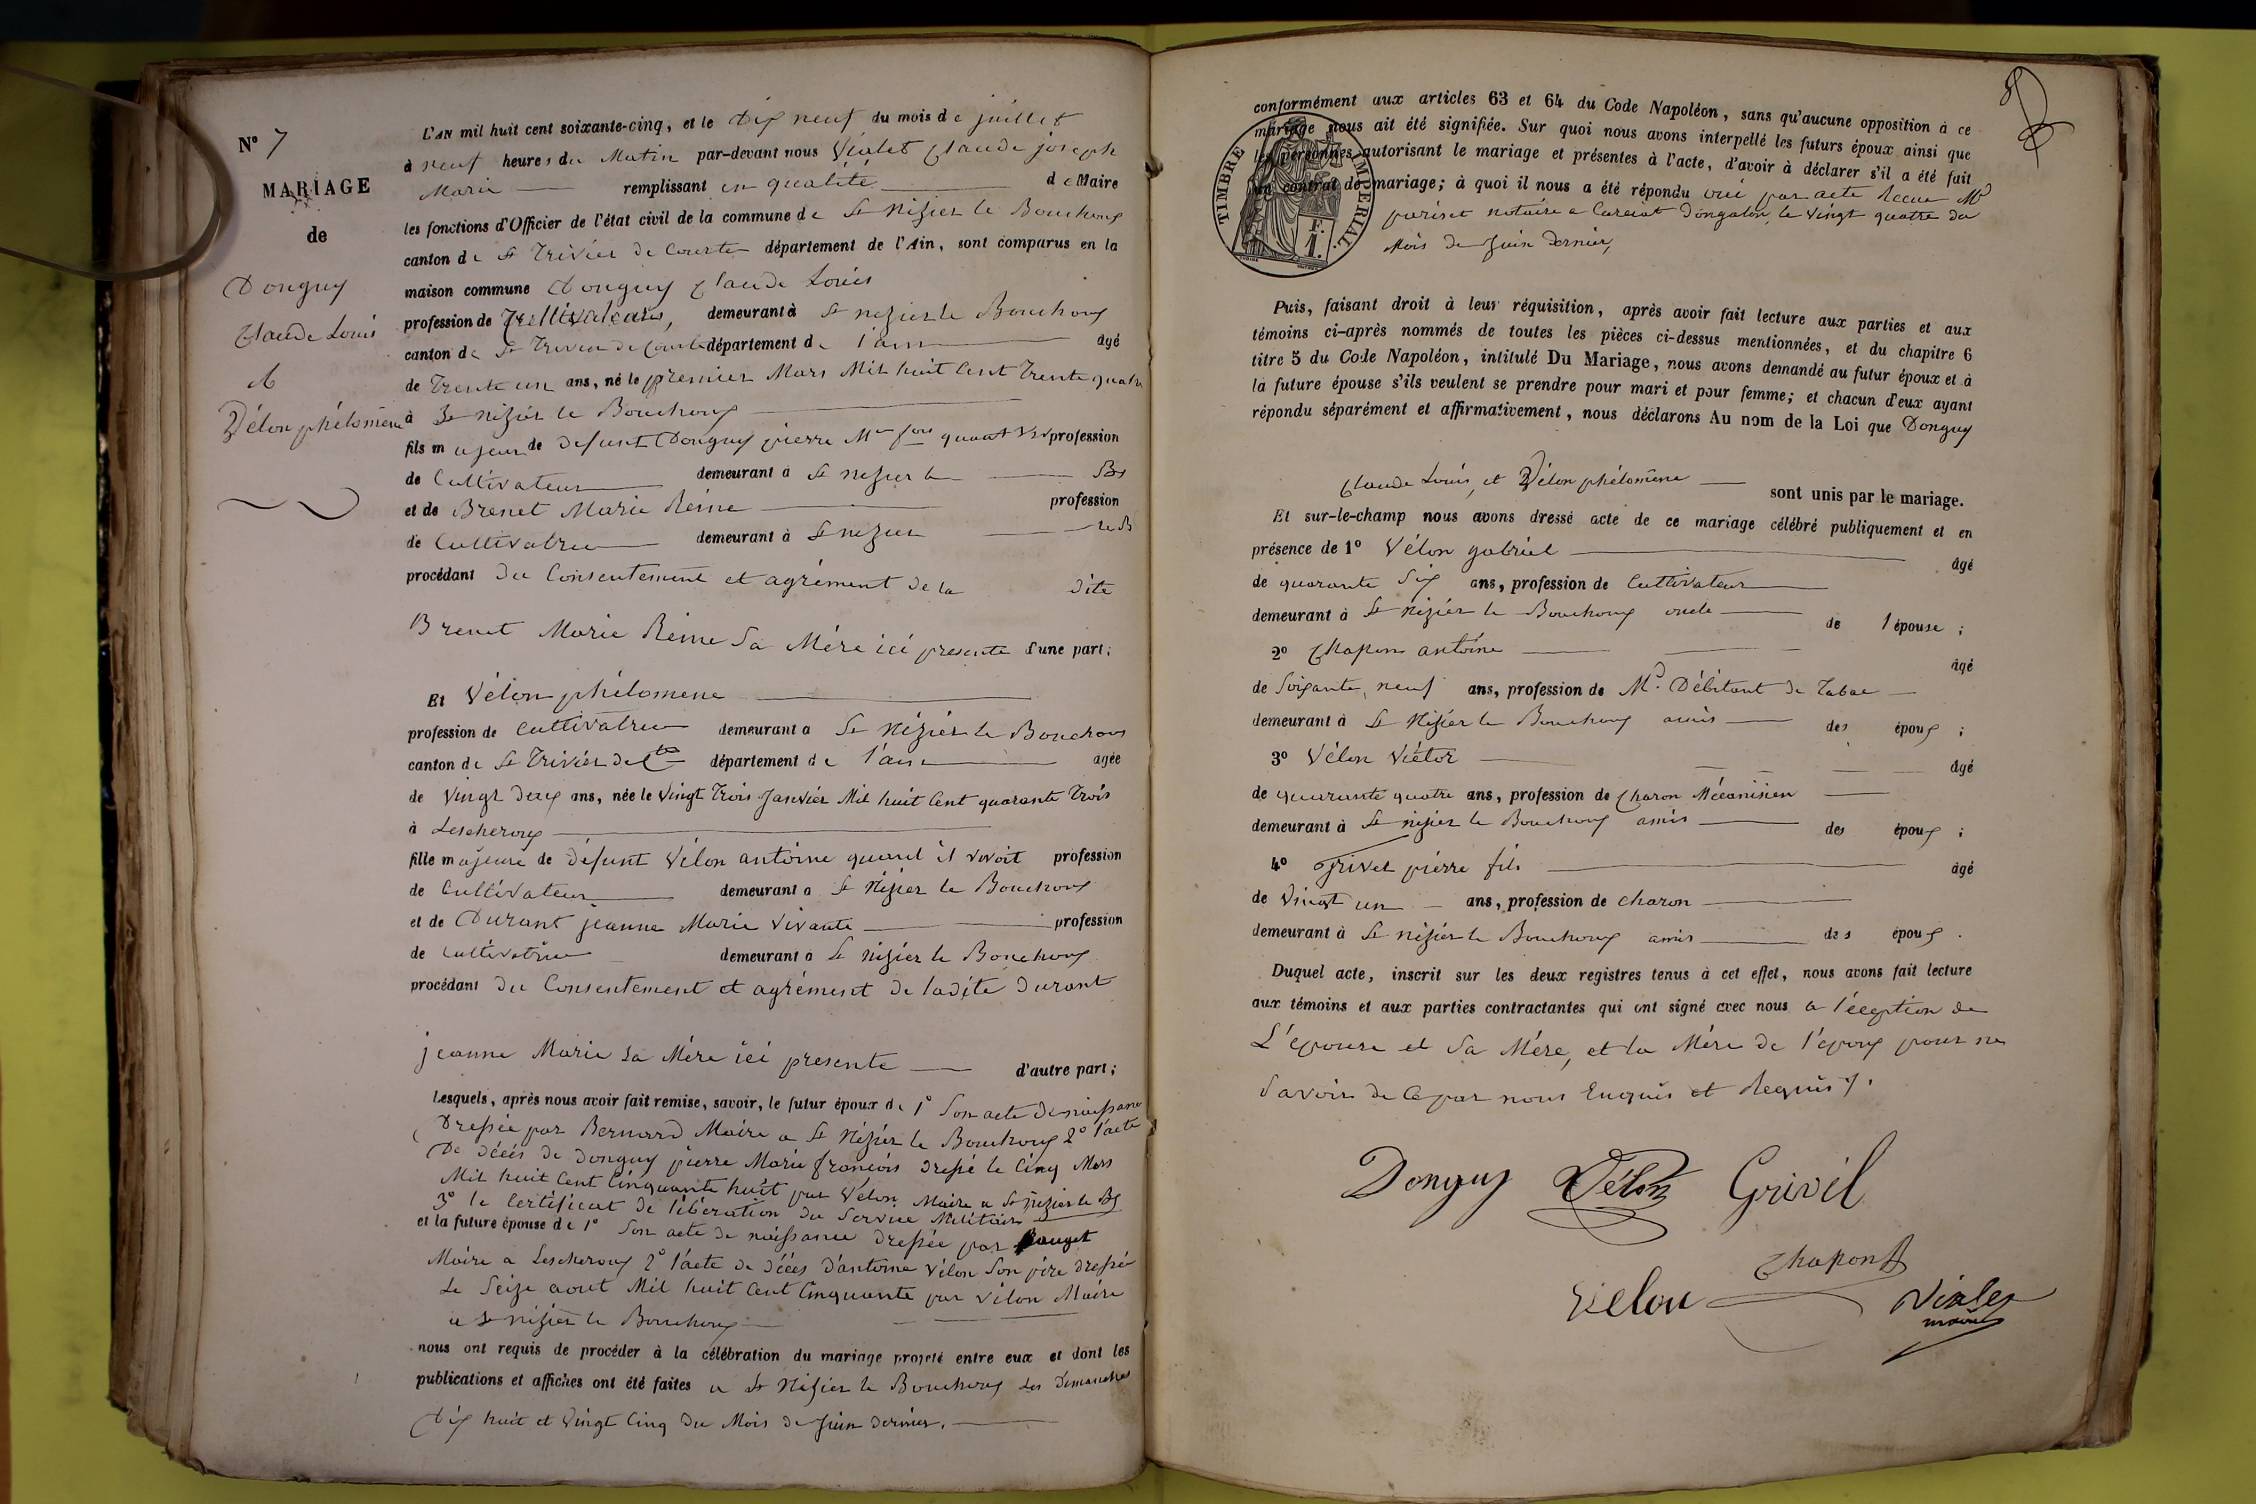 N° 7
MARIAGE
de
Donguy
Claude Louis
&
Vélon phélomène
L'AN mil huit cent soixante-cinq, et le Dix neuf du mois de juillet
à neuf heures du Matin par-devant nous Violet Claude joseph
Marie remplissant en qualité de Maire
les fonctions d'Officier de l'état civil de la commune de St Nizier le Bouchoux
canton de St Trivier de Courtes département de l'Ain, sont comparus en la
maison commune Donguy Claude Louis
profession de Cultivateur, demeurant à St nizier le Bouchoux
canton de St Trivier de Courtes département de l'ain âgé
de Trente un ans, né le premier Mars Mil huit Cent Trente quatre
à St nizier le Bouchoux
fils majeur de défunt Donguy pierre Mie fois quant profession
de Cultivateur demeurant à St nizier le Bx
et de Brenet Marie Reine profession
de Cultivatrice demeurant à St nizier le B
procédant du Consentement et agrément de la dite
Brenet Marie Reine Sa Mére ici presente d'une part;
Et Vélon phélomene
profession de Cultivatrice demeurant à St Nizier le Bouchoux
canton de St Trivier de Ctes département de l'ain âgée
de Vingt Deux ans, née le Vingt Trois Janvier Mil huit Cent quarante Trois
à Lescheroux
fille majeure de défunt Vélon antoine quand il vivoit profession
de Cultivateur demeurant à St Nizier le Bouchoux
et de Durant jeanne Marie Vivante profession
de Cultivatrice demeurant à St nizier le Bouchoux
procédant du Consentement et agrément de ladite Durant
jeanne Marie sa Mére ici presente d'autre part;
Lesquels, après nous avoir fait remise, savoir, le futur époux de 1° Son acte de naissance
Dressée par Bernard Maire a St Nizier le Bouchoux 2° l'acte
De décés de Donguy pierre Marie françois dressé le Cinq Mars
Mil huit Cent Cinquante huit par Vélon Maire a St nizier le Bx
3° le Certificat de libération du Service Militaire
et la future épouse de 1° Son acte de naissance dressée par Pauget
Maire a Lescheroux 2° l'acte de décés d'antoine Vélon Son pére dressé
Le Seize aout Mil huit Cent Cinquante par Vélon Maire
a St nizier le Bouchoux
nous ont requis de procéder à la célébration du mariage projeté entre eux et dont les
publications et affiches ont été faites a St Nizier le Bouchoux les Dimanches
Dix huit et Vingt Cinq du Mois de Juin dernier.
8
TIMBRE IMPERIAL
F. 1.
conformément aux articles 63 et 64 du Code Napoléon, sans qu'aucune opposition à ce
mariage nous ait été signifiée. Sur quoi nous avons interpellé les futurs époux ainsi que
les personnes autorisant le mariage et présentes à l'acte, d'avoir à déclarer s'il a été fait
un contrat de mariage; à quoi il nous a été répondu oui par acte Recue Me
pariset notaire a Curciat Dongalon, le Vingt quatre du
Mois de Juin Dernier,
Puis, faisant droit à leur réquisition, après avoir fait lecture aux parties et aux
témoins ci-après nommés de toutes les pièces ci-dessus mentionnées, et du chapitre 6
titre 5 du Code Napoléon, intitulé Du Mariage, nous avons demandé au futur époux et à
la future épouse s'ils veulent se prendre pour mari et pour femme; et chacun d'eux ayant
répondu séparément et affirmativement, nous déclarons Au nom de la Loi que Donguy
Claude Louis, et Vélon phélomène sont unis par le mariage.
Et sur-le-champ nous avons dressé acte de ce mariage célébré publiquement et en
présence de 1° Vélon gabriel âgé
de quarante Six ans, profession de Cultivateur
demeurant à St Nizier le Bouchoux oncle de l'épouse;
2° Chapon antoine âgé
de Soixante, neuf ans, profession de Md. Débitant de Tabac
demeurant à St Nizier le Bouchoux amis des époux;
3° Vélon Victor âgé
de quarante quatre ans, profession de Charon Mécanisien
demeurant à St nizier le Bouchoux amis des époux;
4° Grivel pierre fils âgé
de Vingt un ans, profession de charon
demeurant à St nizier le Bouchoux amis des époux.
Duquel acte, inscrit sur les deux registres tenus à cet effet, nous avons fait lecture
aux témoins et aux parties contractantes qui ont signé avec nous a l'éception de
L'épouse et Sa Mére, et la Mére de l'époux pour ne
Savoir de Ce par nous Enquis et Requis.
Donguy Vélon Grivel
Chapon A
Vélon Violet
maire